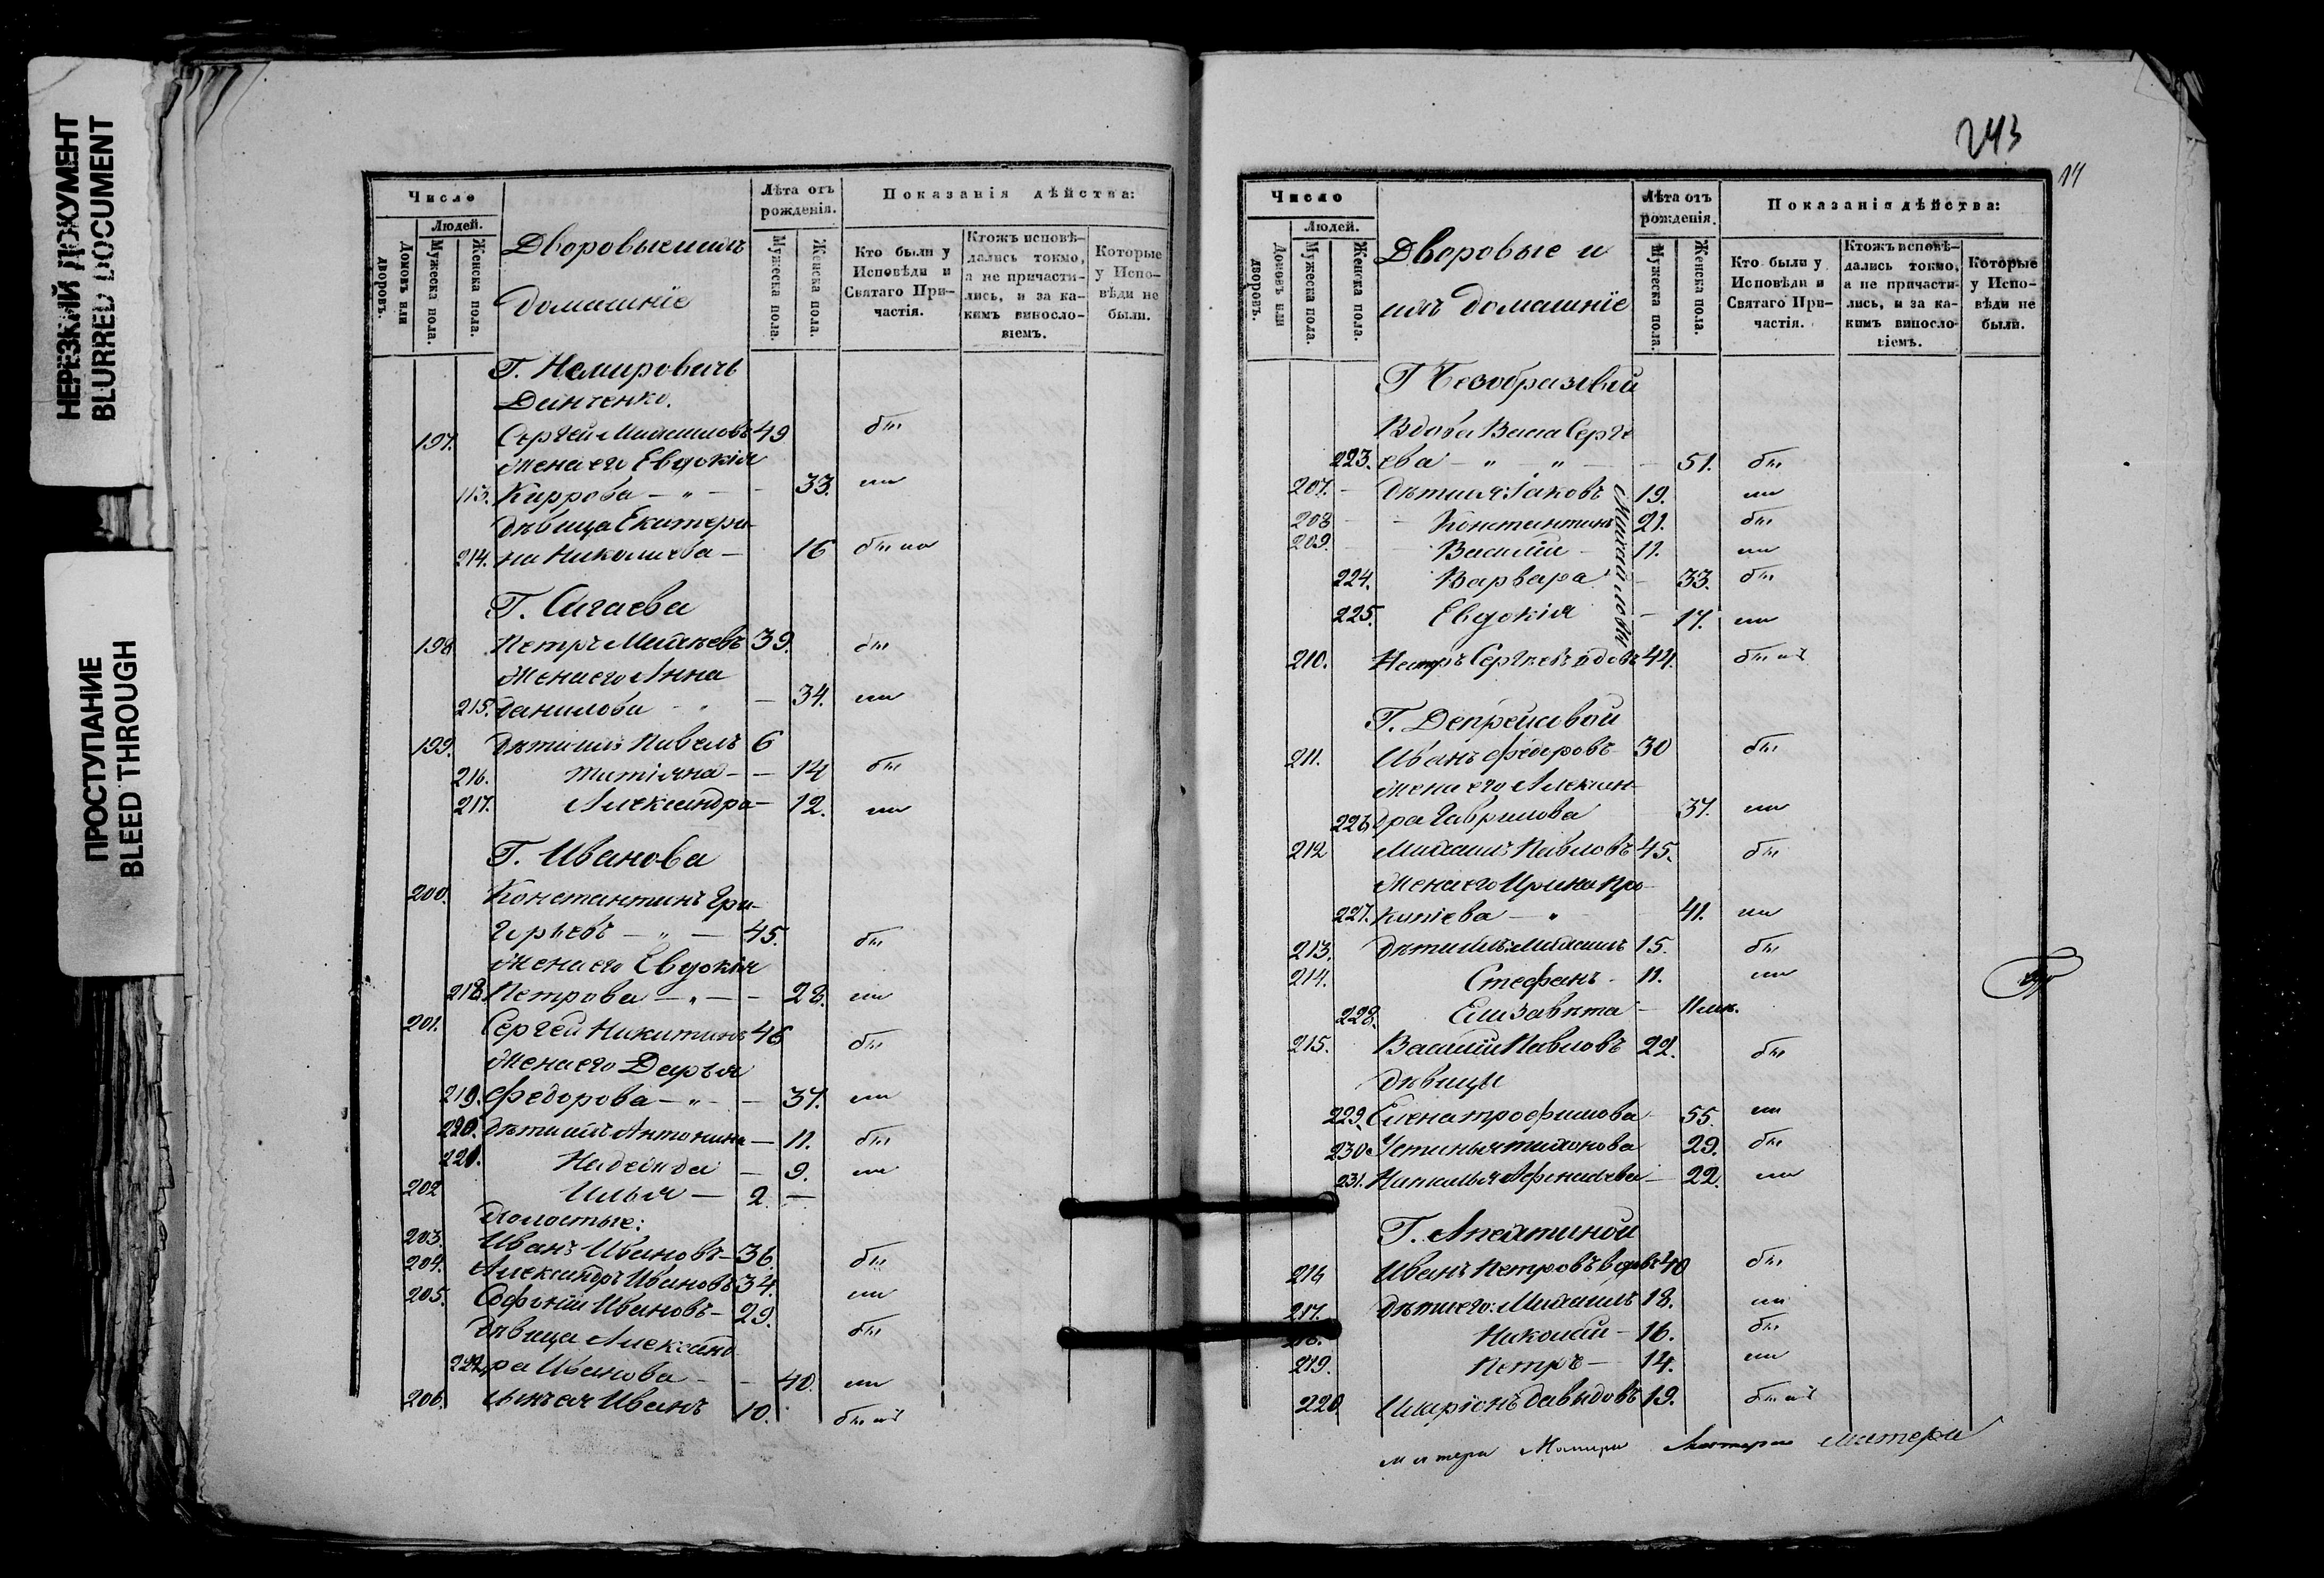 НЕРЕЗКИЙ ДОКУМЕНТ
BLURRED DOCUMENT
ПРОСТУПАНИЕ
BLEED THROUGH
Число
Людей.
Домовъ или дворовъ.
Мужеска пола.
Женска пола.
Дворовые и ихъ
домашніе
Лѣта отъ рожденія.
Мужеска пола.
Женска пола.
Показанія дѣйства:
Кто были у Исповѣди и Святаго При-частія.
Ктожъ исповѣ-дались токмо, а не причасти-лись, и за ка-кимъ винosло-віемъ.
Которые у Испо-вѣди не были.
Г. Немировичь
Данченко.
197. Сергей Михаиловъ 49 бы
Жена его Евдокія
113. Каррова — „ — 33. ли
Дѣвица Екатери-
214. на Николаева — 16 бы ла
Г. Сигаева
198 Петръ Михѣевъ 39. бы
Жена его Анна
215. Данилова — 34. ли
199. Дѣти ихъ Павелъ 6
216. Татіяна — 14 бы
217. Александра — 12. ли
Г. Иванова
200. Константинъ Гри-
горьевъ — „ — 45. бы
Жена его Евдокія
218. Петрова — „ — 28. ли
201. Сергей Никитинъ 46 бы
Жена его Дарья
219. Федорова — „ — 37. ли
220. Дѣти ихъ Антонина — 11. бы
221. Надежда — 9. ли
202 Илья — 2. —
Холостые:
203. Иванъ Ивановъ — 36. бы
204. Александръ Ивановъ 34. ли
205. Софоній Ивановъ — 29. бы
Дѣвица Александ
222. ра Иванова — 40. ли
206. Иванъ 10. бы лъ
243
17
Число
Людей.
Домовъ или дворовъ.
Мужеска пола.
Женска пола.
Дворовые и
ихъ домашніе
Лѣта отъ рожденія.
Мужеска пола.
Женска пола.
Показанія дѣйства:
Кто были у Исповѣди и Святаго При-частія.
Ктожъ исповѣ-дались токмо, а не причасти-лись, и за ка-кимъ винosло-віемъ.
Которые у Испо-вѣди не были.
Г Безобразовой
Вдова Васа Серге
223. ева — „ — „ — 51. бы
207. — Дѣти ея: Іаковъ 19. ли
208 — Константинъ 21. бы
209. — Василій 11. ли
224. Варвара — 33. бы
225. Евдокія — 17. ли
Михайловы
210. Петръ Сергѣевъ вдовъ 44. бы лъ
Г. Депрейсовой
211. Иванъ Федоровъ 30 бы
Жена его Алексан-
226. дра Гаврилова 37. ли
212 Михаилъ Павловъ 45. бы
Жена его Ирина Про-
227. кипіева — „ 41. ли
213. Дѣти ихъ Михаилъ 15. бы
214. Стефанъ — 11. ли
228. Елизавета — 11 мѣс.
215. Василій Павловъ 22. бы
Дѣвицы
229. Елена Трофимова 55. ли
230 Устинья Тихонова 29. бы
231. Наталья Афонасьева — 22. ли
Г. Апехтиной
216 Иванъ Петровъ вдовъ 40 бы
217. Дѣти его: Михаилъ 18. ли
218. Николай — 16. бы
219. Петръ — 14. ли
220 Иларіонъ Давыдовъ 19. бы лъ
матери Матери Матери Матери